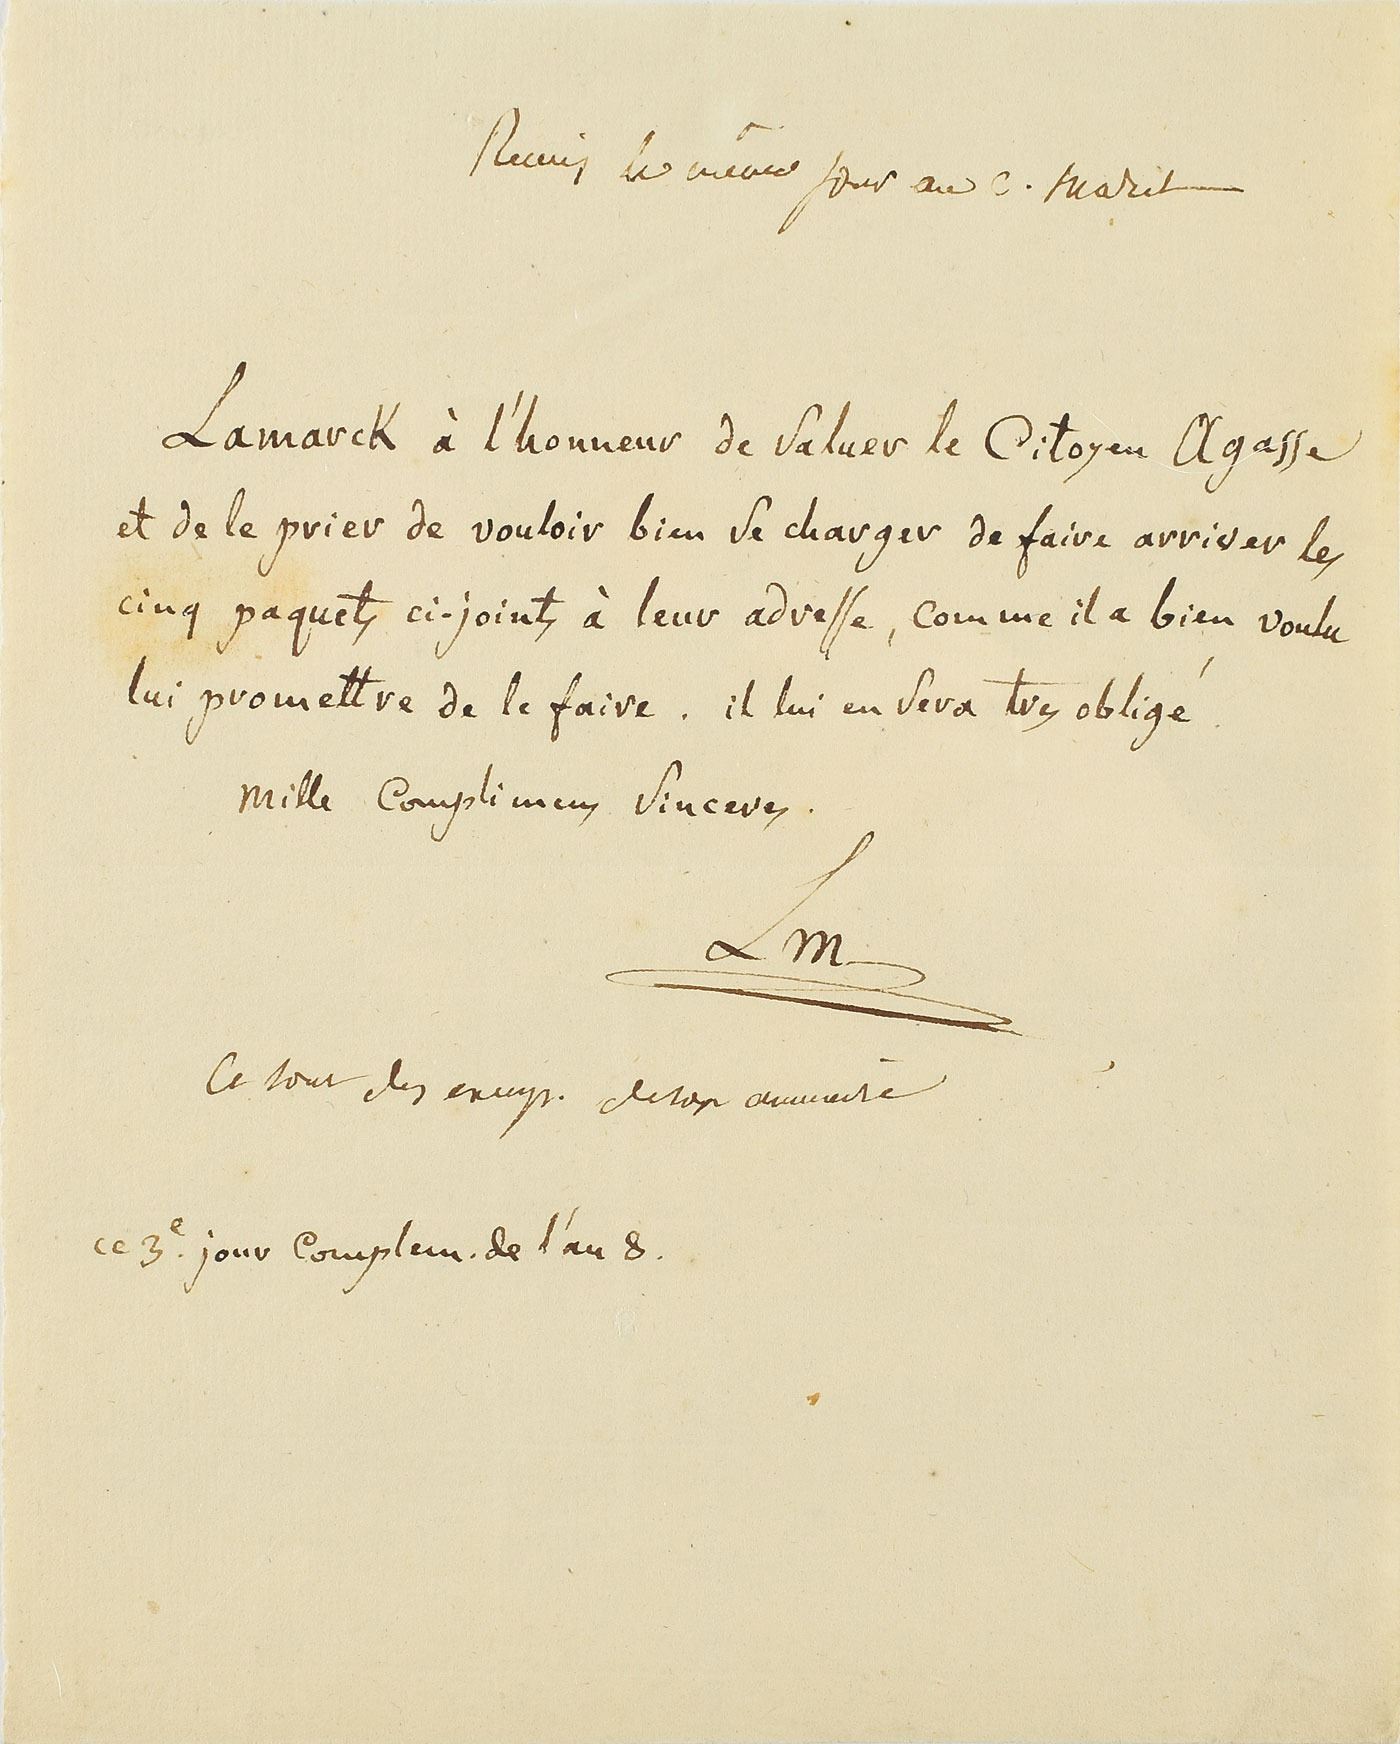 Remis le même jour au C. Maret
Lamarck à l'honneur de saluer le Citoyen Agasse
et de le prier de vouloir bien se charger de faire arriver les
cinq paquets ci-joints à leur adresse, comme il a bien voulu
lui promettre de le faire. il lui en sera tres obligé.
Mille Complimens sinceres.
LM
Ce sont des exemp. de son annuaire
ce 3e. jour Complem. de l'an 8.